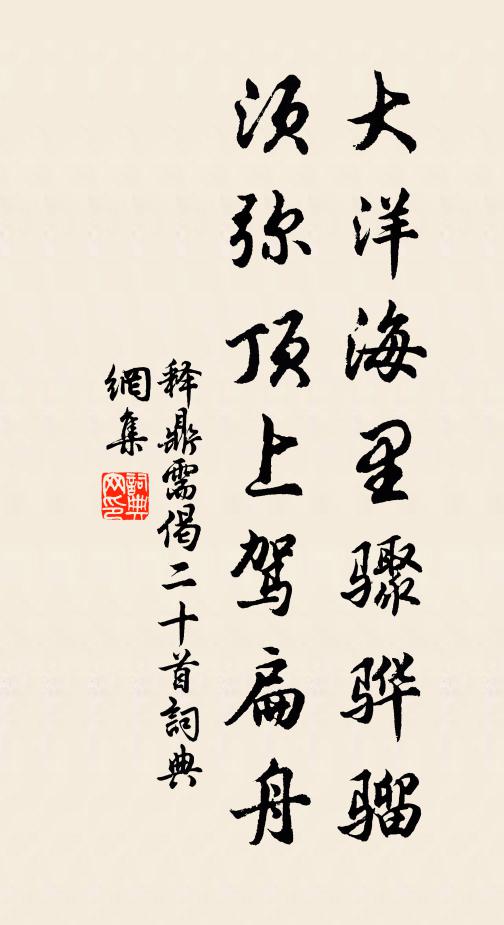 大洋海里骤骅骝
须弥顶上驾扁舟
释鼎需偈二十首詞典
網集
詞典
网印